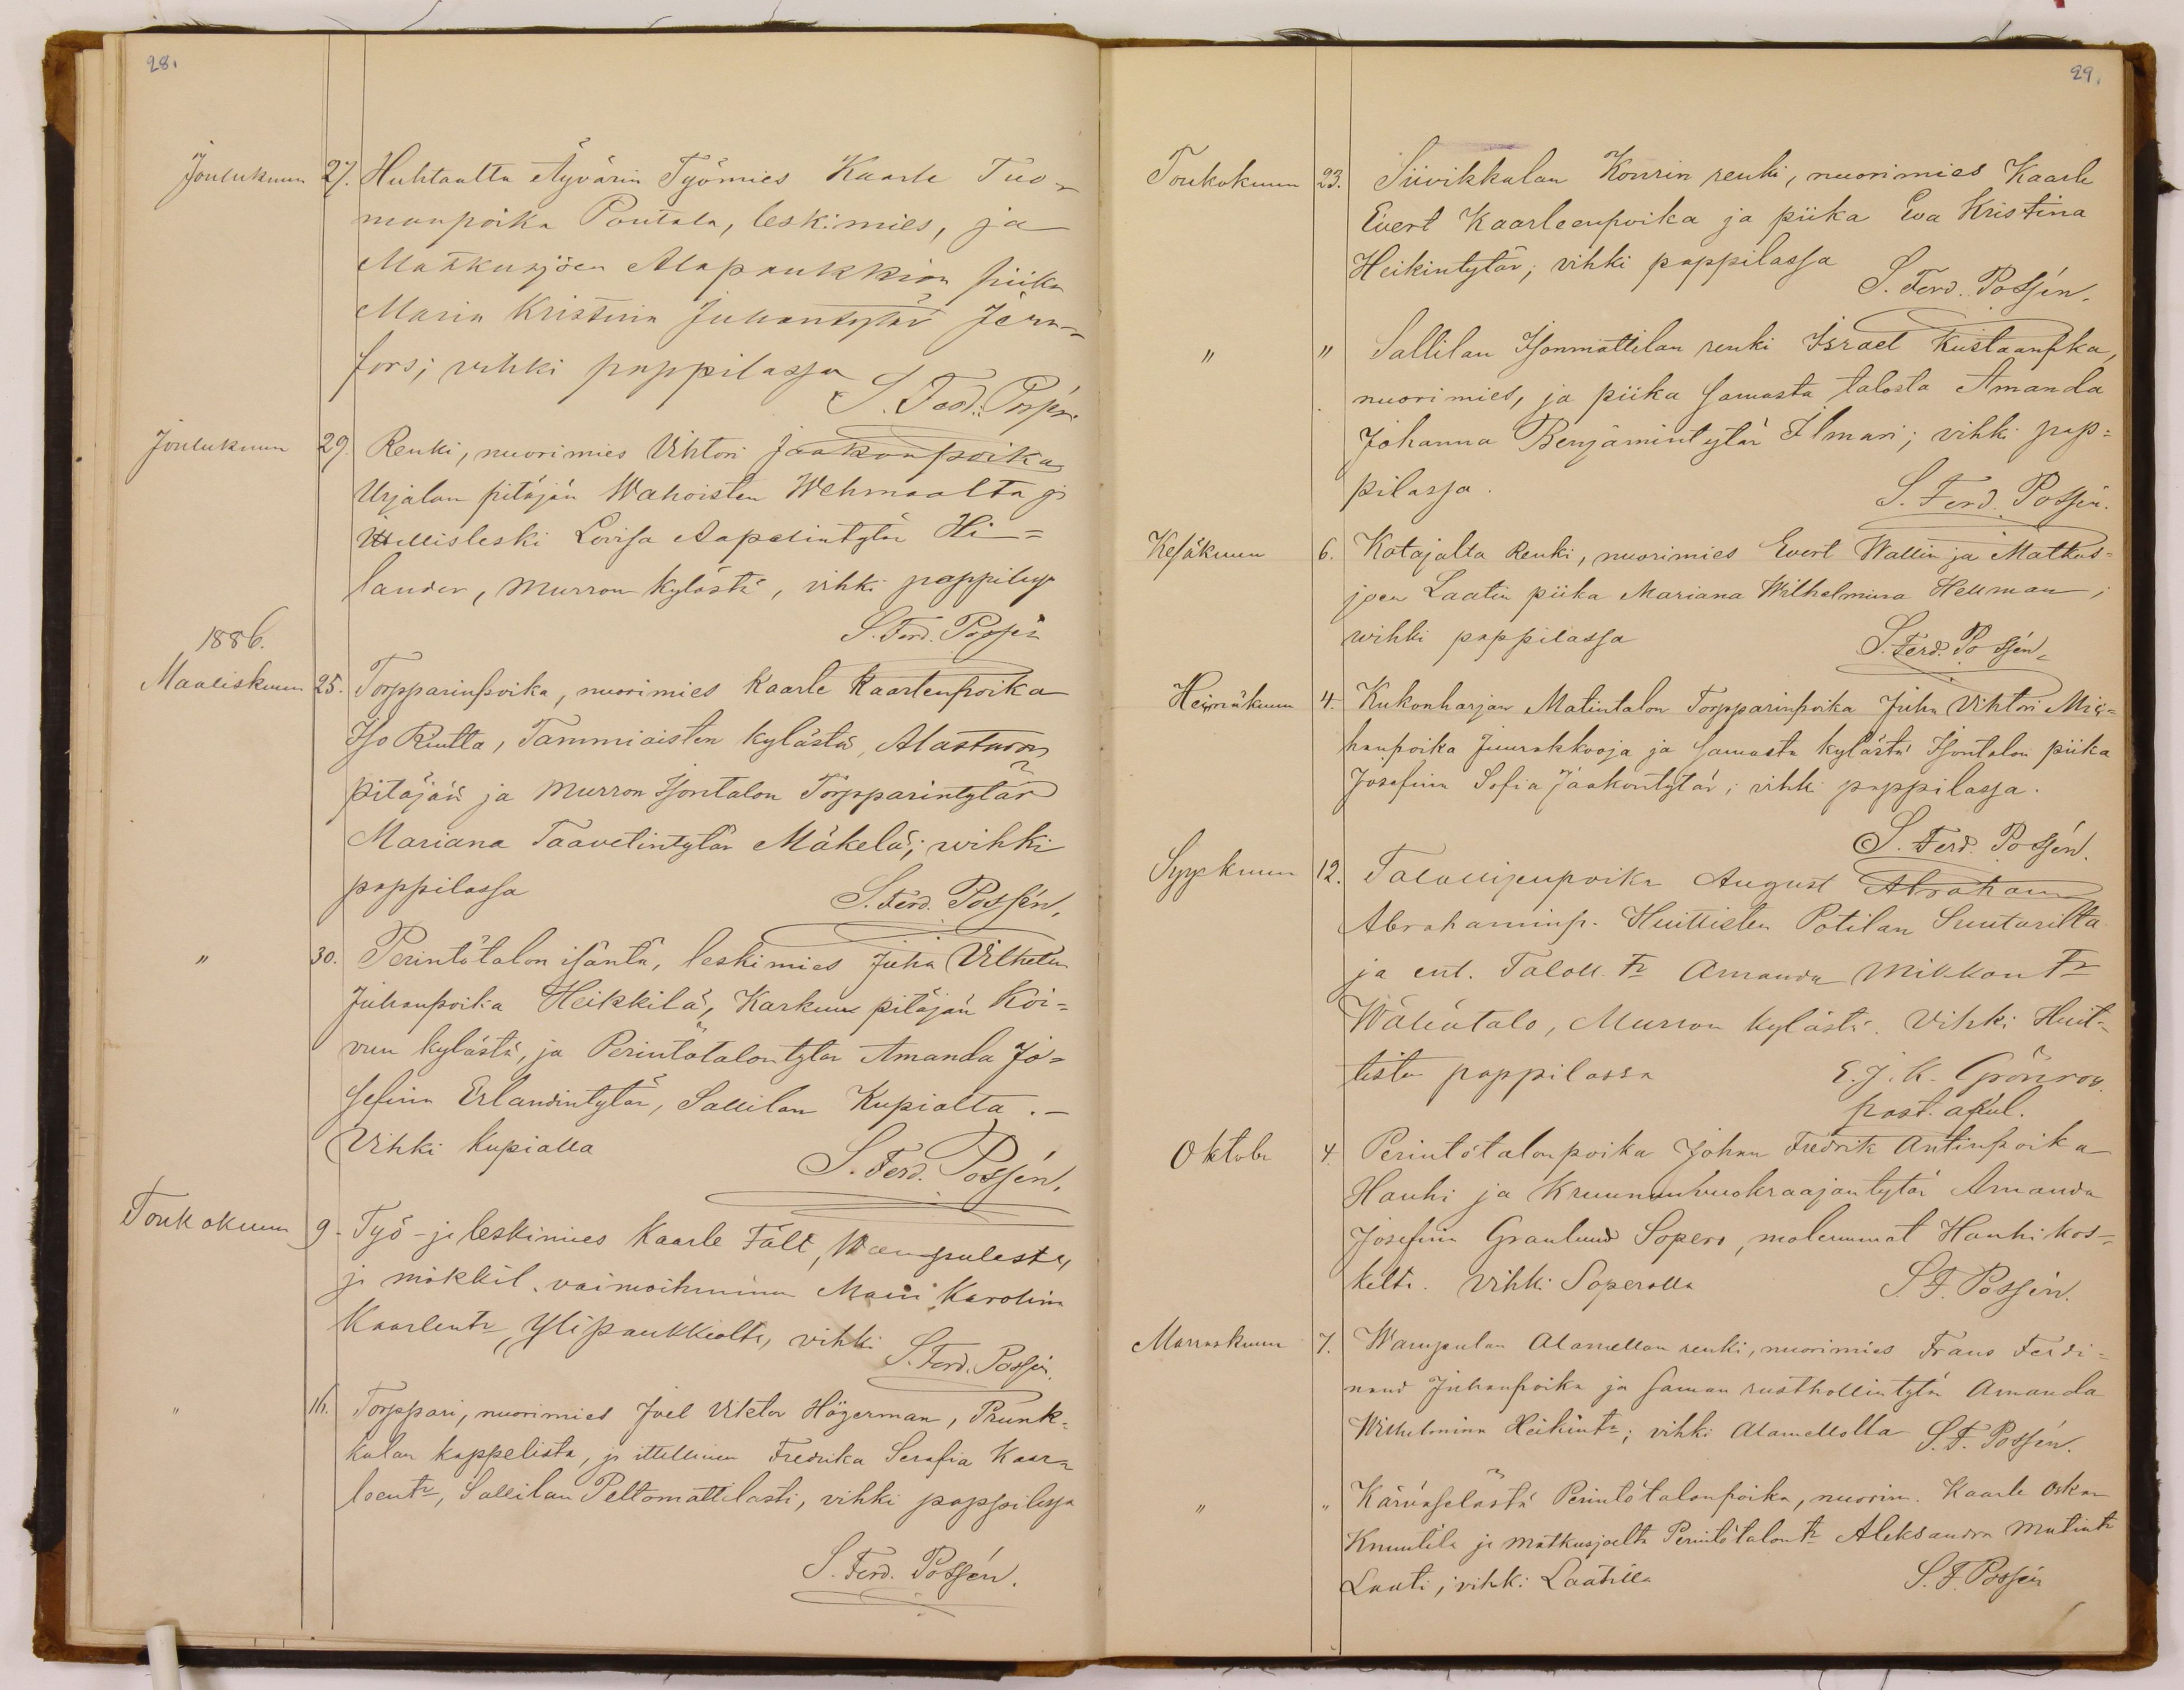 28.
Joulukuun 27. Huhtaalta Äyvärin Työmies Kaarle Tuo-
manpoika Pontala, leskimies, ja
Matkusjoen Alapaukkion piika
Maria Kristina Juhantytär Jern-
fors; vihki pappilassa
S. Ferd. Possén
Joulukuun 29. Renki, nuorimies Vihtori Jaakonpoika
Urjalan pitäjän Wahoisten Wehmaalta ja
Itellisleski Lovisa Aapelintytär Hi-
lander, Murron kylästä, vihki pappilassa
S. Ferd. Possén
1886.
Maaliskuun 25. Torpparinpoika, nuorimies Kaarle Kaarlenpoika
Iso Rutta, Tammiaisten kylästä, Alastaron
pitäjää ja Murron Isontalon Torpparintytär
Mariana Taavetintytär Mäkelä; wihki
pappilassa
S. Ferd. Possén.
" 30. Perintötalon isäntä, leskimies Juha Vilhelm
Juhanpoika Heikkilä, Karkun pitäjän Koi-
vun kylästä, ja Perintötalontytär Amanda Jo-
sefina Erlandintytär, Sallilan Kupialta. -
Vihki Kupialla
S. Ferd. Possén.
Toukokuun 9. Työ- ja leskimies Kaarle Fält, Wampulasta,
ja mökkil. vaimoihminen Maria Karolina
Kaarlentr, Ylipaukkiolta, vihki
S. Ferd. Possén.
" 16. Torppari, nuorimies Joel Viktor Högerman, Prunk-
kalan kappelista, ja ittellinen Fredrika Serafia Kaar-
loentr, Sallilan Peltomattilasta, vihki pappilassa
S. Ferd. Possén.
29.
Toukokuun 23. Siivikkalan Konrin renki, nuorimies Kaarle
Evert Kaarleenpoika ja piika Eva Kristina
Heikintytär; vihki pappilassa
S. Ferd. Possén.
" " Sallilan Isonmattilan renki Israel Kustaanpka,
nuorimies, ja piika samasta talosta Amanda
Johanna Benjamintytär Ilmari; vihki pap-
pilassa.
S. Ferd. Possén.
Kesäkuun 6. Kotajalta Renki, nuorimies Evert Wallin ja Matkus-
joen Laatin piika Mariana Wilhelmina Hellman;
wihki pappilassa
S. Ferd. Possén.
Heinäkuun 4. Kukonharjan Matintalon Torpparinpoika Juha Vihtori Mi-
hanpoika Juurakkooja ja samasta kylästä Isontalon piika
Josefina Sofia Jaakontytär; vihki pappilassa.
S. Ferd. Possén.
Syyskuun 12. Talollisenpoika August Abraham
Abrahaminp. Huittisten Potilan Suutarilta
ja ent. Taloll. Tr Amanda Mikkon Tr
Wähätalo, Murron kylästä. Vihki Huit-
tisten pappilassa
E. J. K. Grönroos
past. adjul.
Oktober 4. Perintötalonpoika Johan Fredrik Antinpoika
Hanhi ja Kruununvuokraajantytär Amanda
Josefina Granlund Sopero, molemmat Hanhikos-
kelta. Vihki Soperolla
S. F. Possén.
Marraskuun 7. Wampulan Alamellon renki, nuorimies Frans Ferdi-
nand Juhanpoika ja saman rusthollintytär Amanda
Wilhelmina Heikintr; vihki Alamellolla
S. F. Possén.
" " Kärväselästä Perintötalonpoika, nuorim. Kaarle Oskar
Knuutila ja Matkusjoelta Perintötalontr Aleksandra Matintr
Laati; vihki Laatilla
S. F. Possén